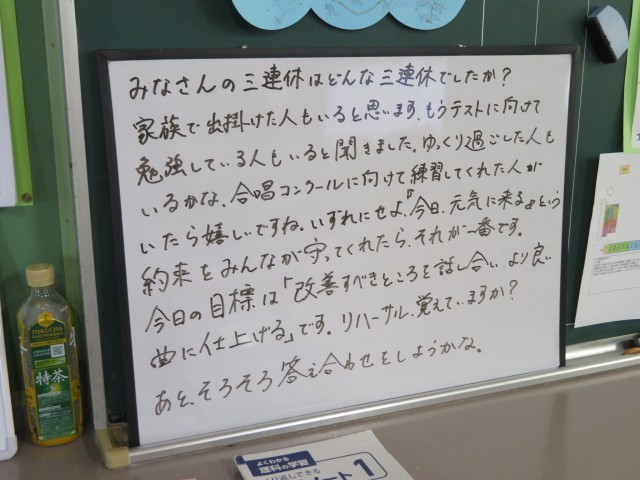 みなさんの三連休はどんな三連休でしたか?
家族で出掛けた人もいると思います。もうテストに向けて
勉強している人もいると聞きました。ゆっくり過ごした人も
いるかな。合唱コンクールに向けて練習してくれた人が
いたら嬉しいですね。いずれにせよ、『今日、元気に来る』という
約束をみんなが守ってくれたら、それが一番です。
今日の目標は「改善すべきところを話し合い、より良い
曲に仕上げる」です。リハーサル、覚えていますか?
あと、そろそろ答え合わせをしようかな。
TOKUCHA
特茶
よくわかる
理科の学習
ノート1